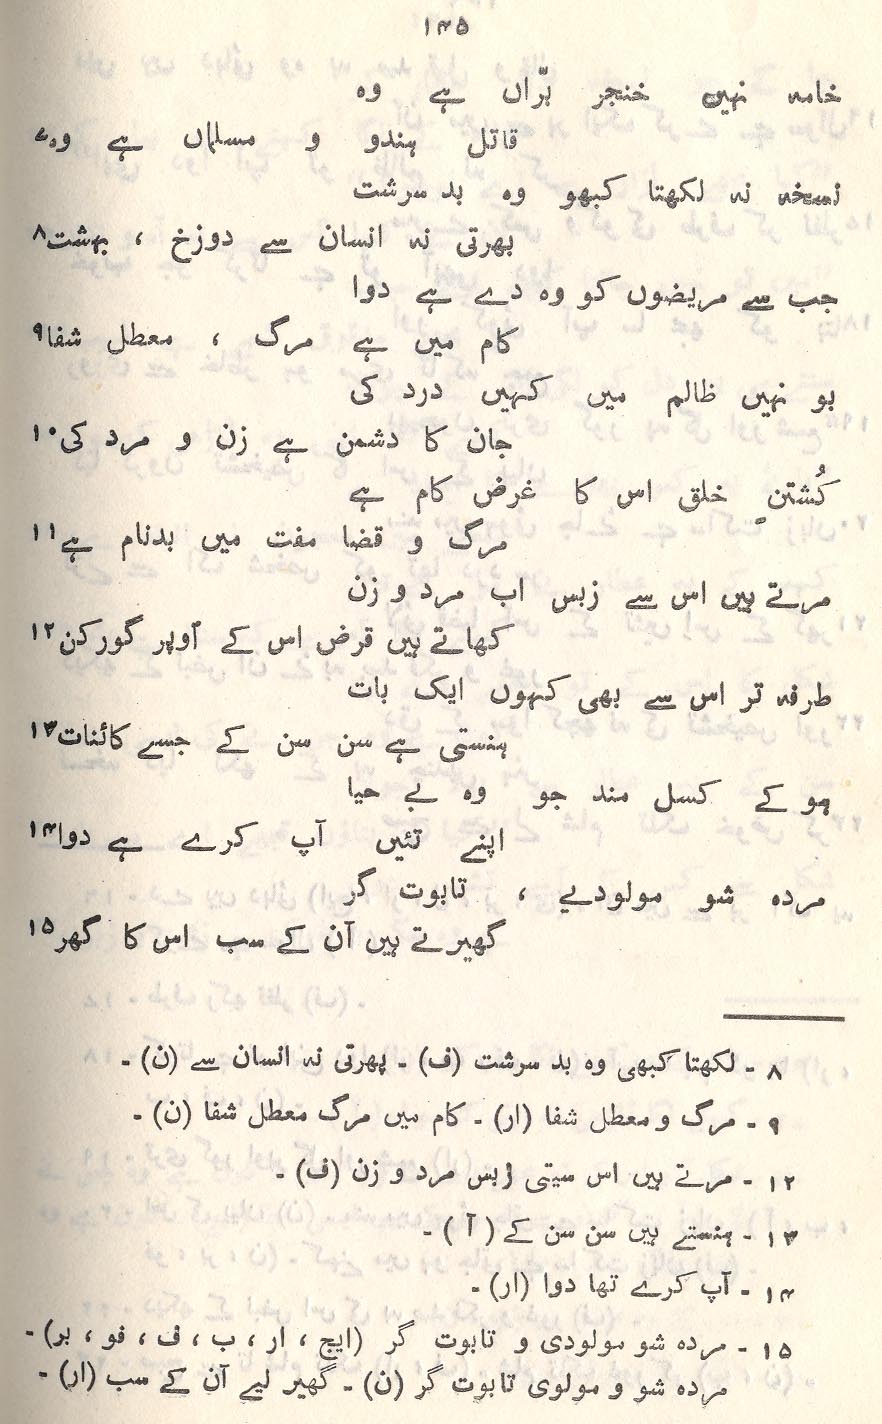 ۱۴۵
خامہ نہیں خنجر برّاں ہے وہ
قاتل ہندو و مسلماں ہے وہ۷
نسخہ نہ لکھتا کبھو وہ بد سرشت
بھرتی نہ انسان سے دوزخ ، بہشت۸
جب سے مریضوں کو وہ دے ہے دوا
کام میں ہے مرگ ، معطل شفا۹
بو نہیں ظالم میں کہیں درد کی
جان کا دشمن ہے زن و مرد کی۱۰
کُشتنِ خلق اس کا غرض کام ہے
مرگ و قضا مفت میں بدنام ہے۱۱
مرتے ہیں اس سے زبس اب مرد و زن
کھاتے ہیں قرض اس کے اوپر گورکن۱۲
طرفہ تر اس سے بھی کہوں ایک بات
ہنستی ہے سن سن کے جسے کائنات۱۳
ہو کے کسل مند جو وہ بے حیا
اپنے تئیں آپ کرے ہے دوا۱۴
مردہ شو مولودیے ، تابوت گر
گھیرتے ہیں آن کے سب اس کا گھر۱۵
۸ - لکھتا کبھی وہ بد سرشت (ف) - پھرتی نہ انسان سے (ن) -
۹ - مرگ و معطل شفا (ار) - کام میں مرگ معطل شفا (ن) -
۱۲ - مرتے ہیں اس سیتی زبس مرد و زن (ف) -
۱۳ - ہنستے ہیں سن سن کے ( آ ) -
۱۴ - آپ کرے تھا دوا (ار) -
۱۵ - مردہ شو مولودی و تابوت گر (ایچ ، ار ، ب ، ف ، فو ، بر) -
مردہ شو و مولوی تابوت گر (ن) - گھیر لیے آن کے سب (ار) -